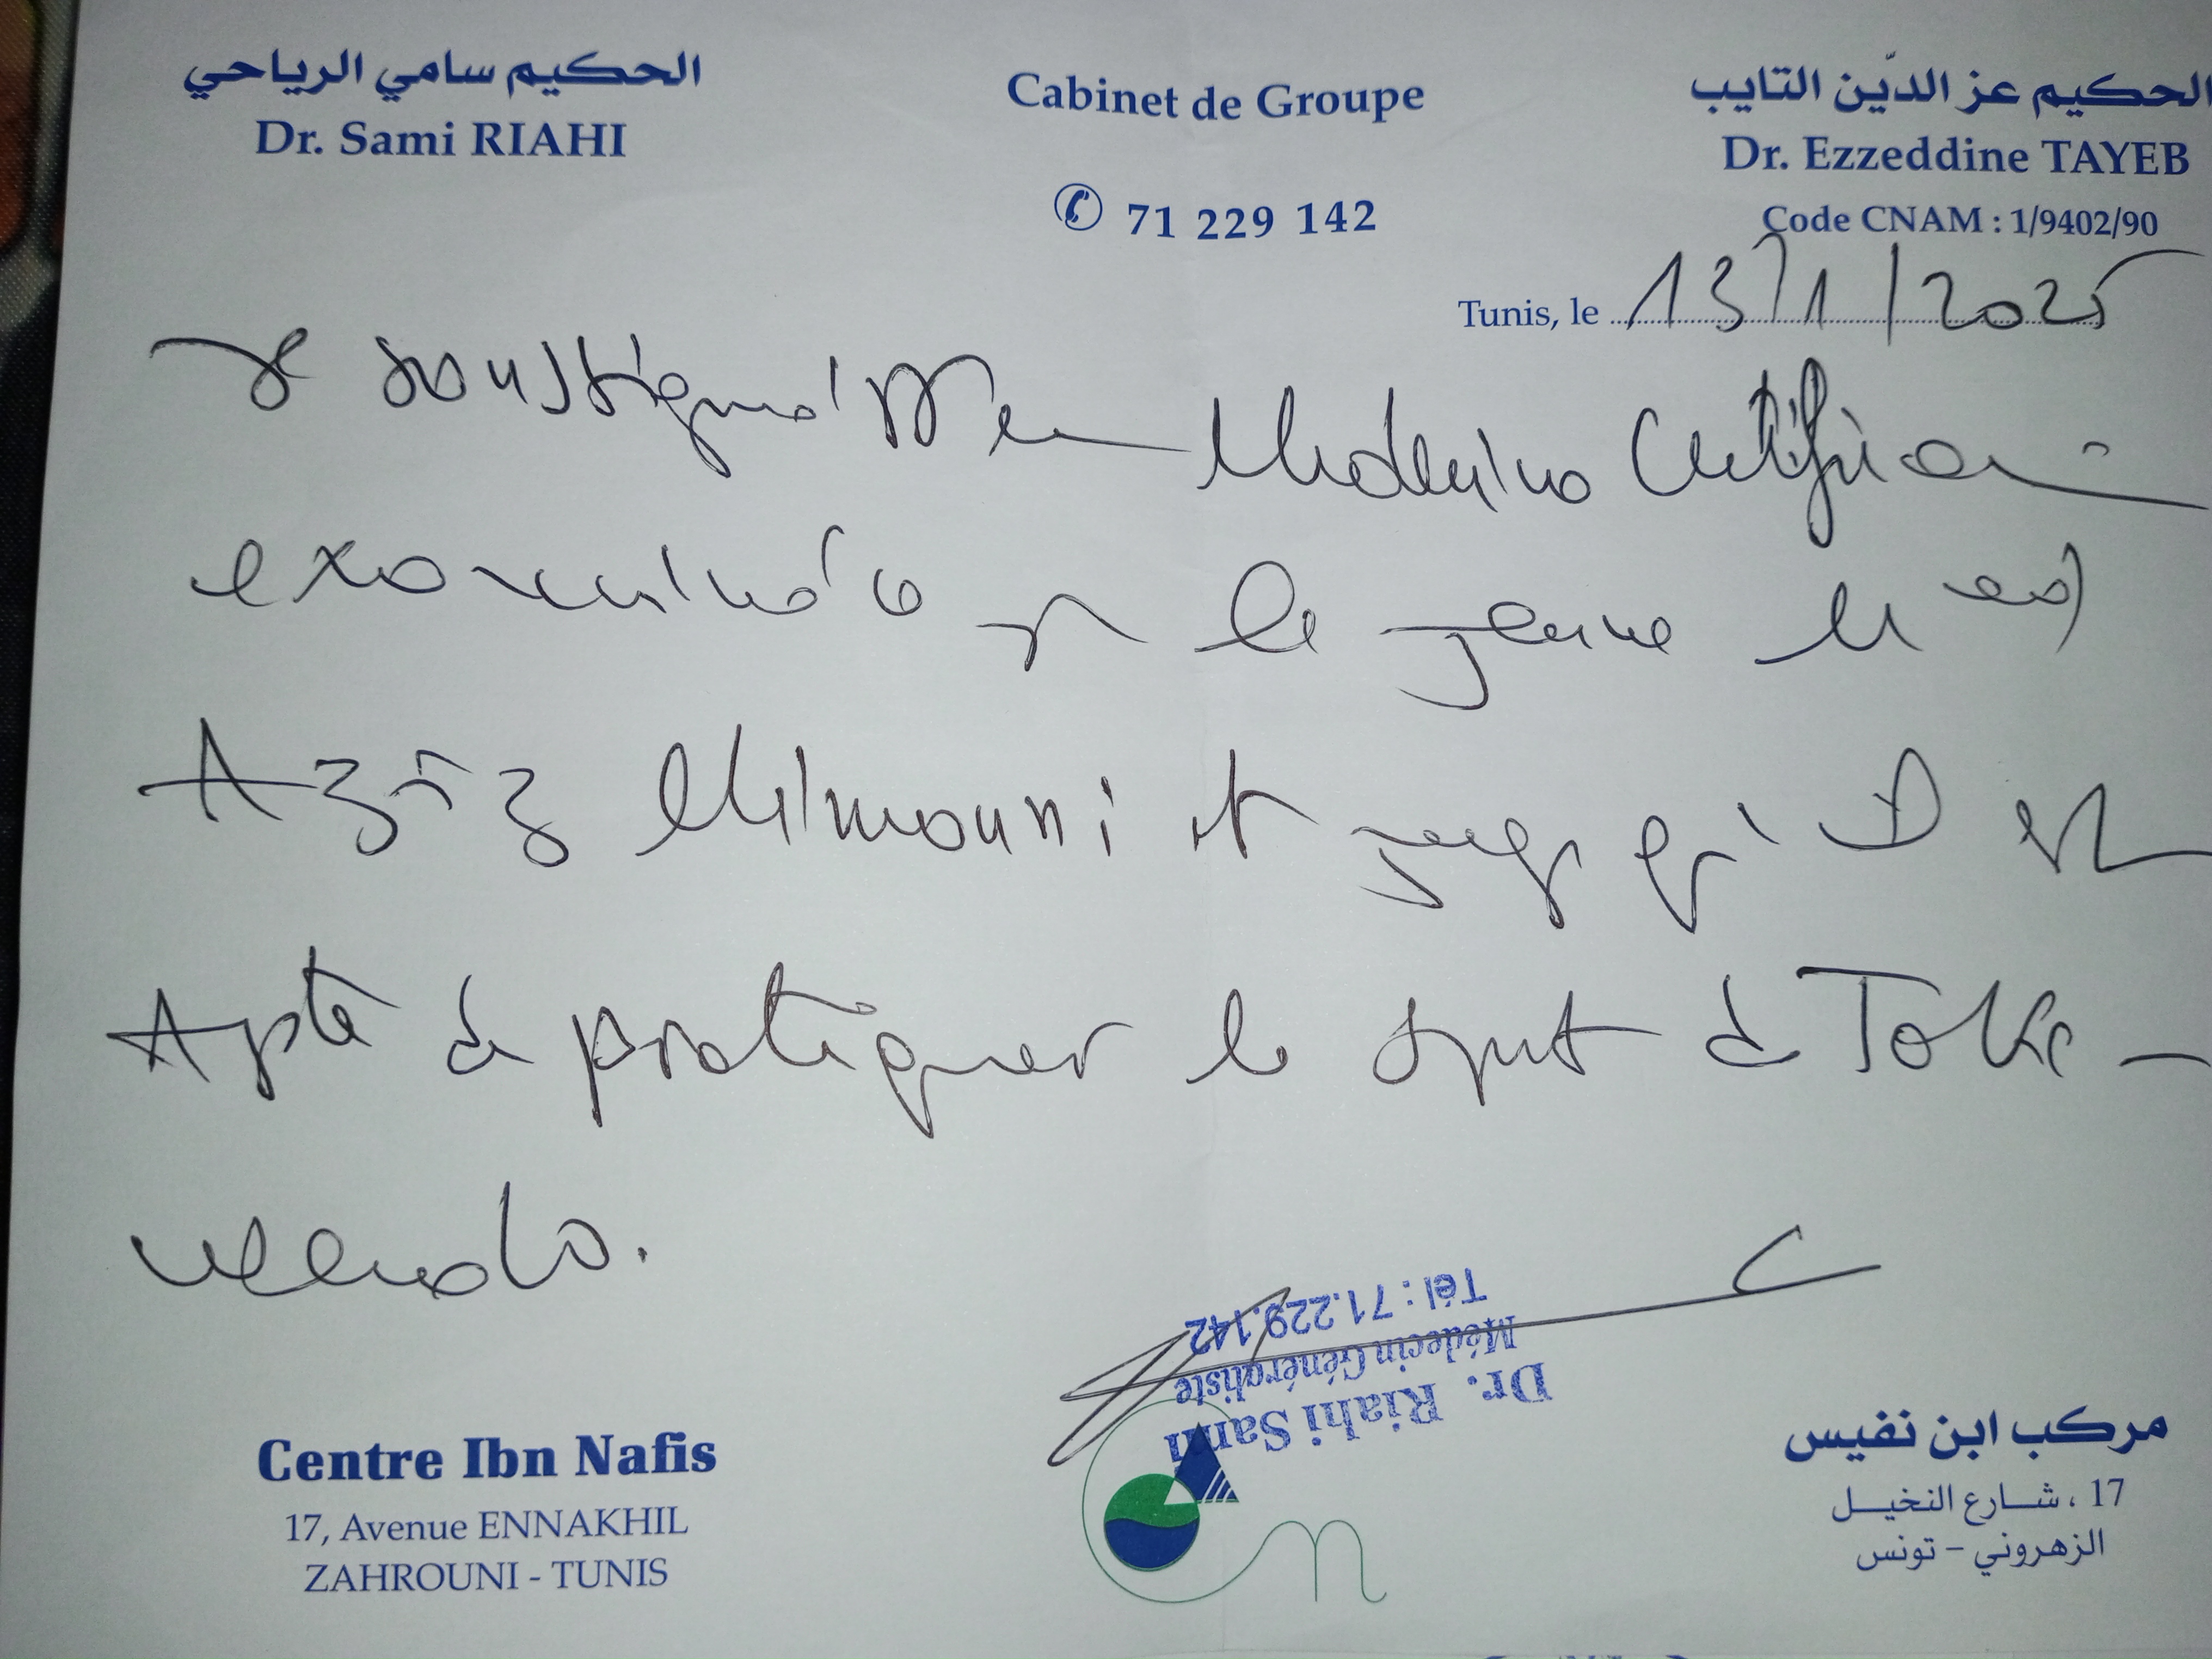 الحكيم سامي الرياحي
Dr. Sami RIAHI
Cabinet de Groupe
71 229 142
الحكيم عز الدّين التايب
Dr. Ezzeddine TAYEB
Code CNAM : 1/9402/90
Tunis, le 13/1/2025
Je soussigné Dr en Médecine Certifie
examiné le jeune Med
Aziz Mimouni et juge qu'il est
Apte à pratiquer le sport de
Tél : 71.229.142
Médecin Généraliste
Dr. Riahi Sami
Centre Ibn Nafis
17, Avenue ENNAKHIL
ZAHROUNI - TUNIS
مركب ابن نفيس
17 ، شارع النخيل
الزهروني - تونس